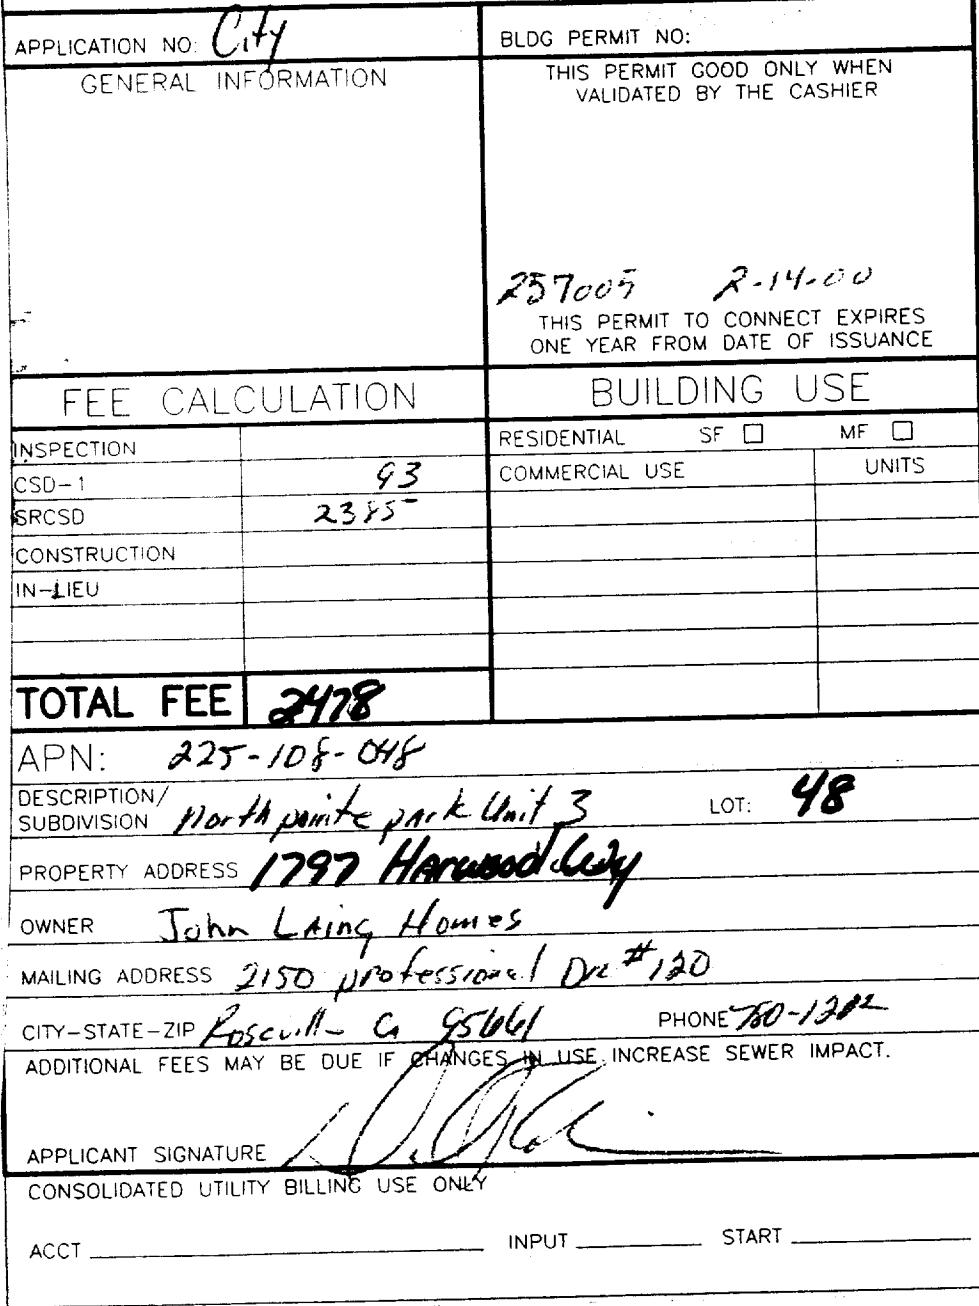 APPLICATION NO: City
BLDG PERMIT NO:
GENERAL INFORMATION
THIS PERMIT GOOD ONLY WHEN
VALIDATED BY THE CASHIER
257005 2-14-00
THIS PERMIT TO CONNECT EXPIRES
ONE YEAR FROM DATE OF ISSUANCE
FEE CALCULATION
INSPECTION
CSD-1 93
SRCSD 2385
CONSTRUCTION
IN-LIEU
TOTAL FEE 2478
BUILDING USE
RESIDENTIAL SF ☐ MF ☐
COMMERCIAL USE UNITS
APN: 225-108-048
DESCRIPTION/
SUBDIVISION Northpointe park Unit 3 LOT: 48
PROPERTY ADDRESS 1797 Harwood Way
OWNER John Laing Homes
MAILING ADDRESS 2150 professional Dr #120
CITY-STATE-ZIP Roseville Ca 95661 PHONE 780-1202
ADDITIONAL FEES MAY BE DUE IF CHANGES IN USE INCREASE SEWER IMPACT.
APPLICANT SIGNATURE
CONSOLIDATED UTILITY BILLING USE ONLY
ACCT INPUT START